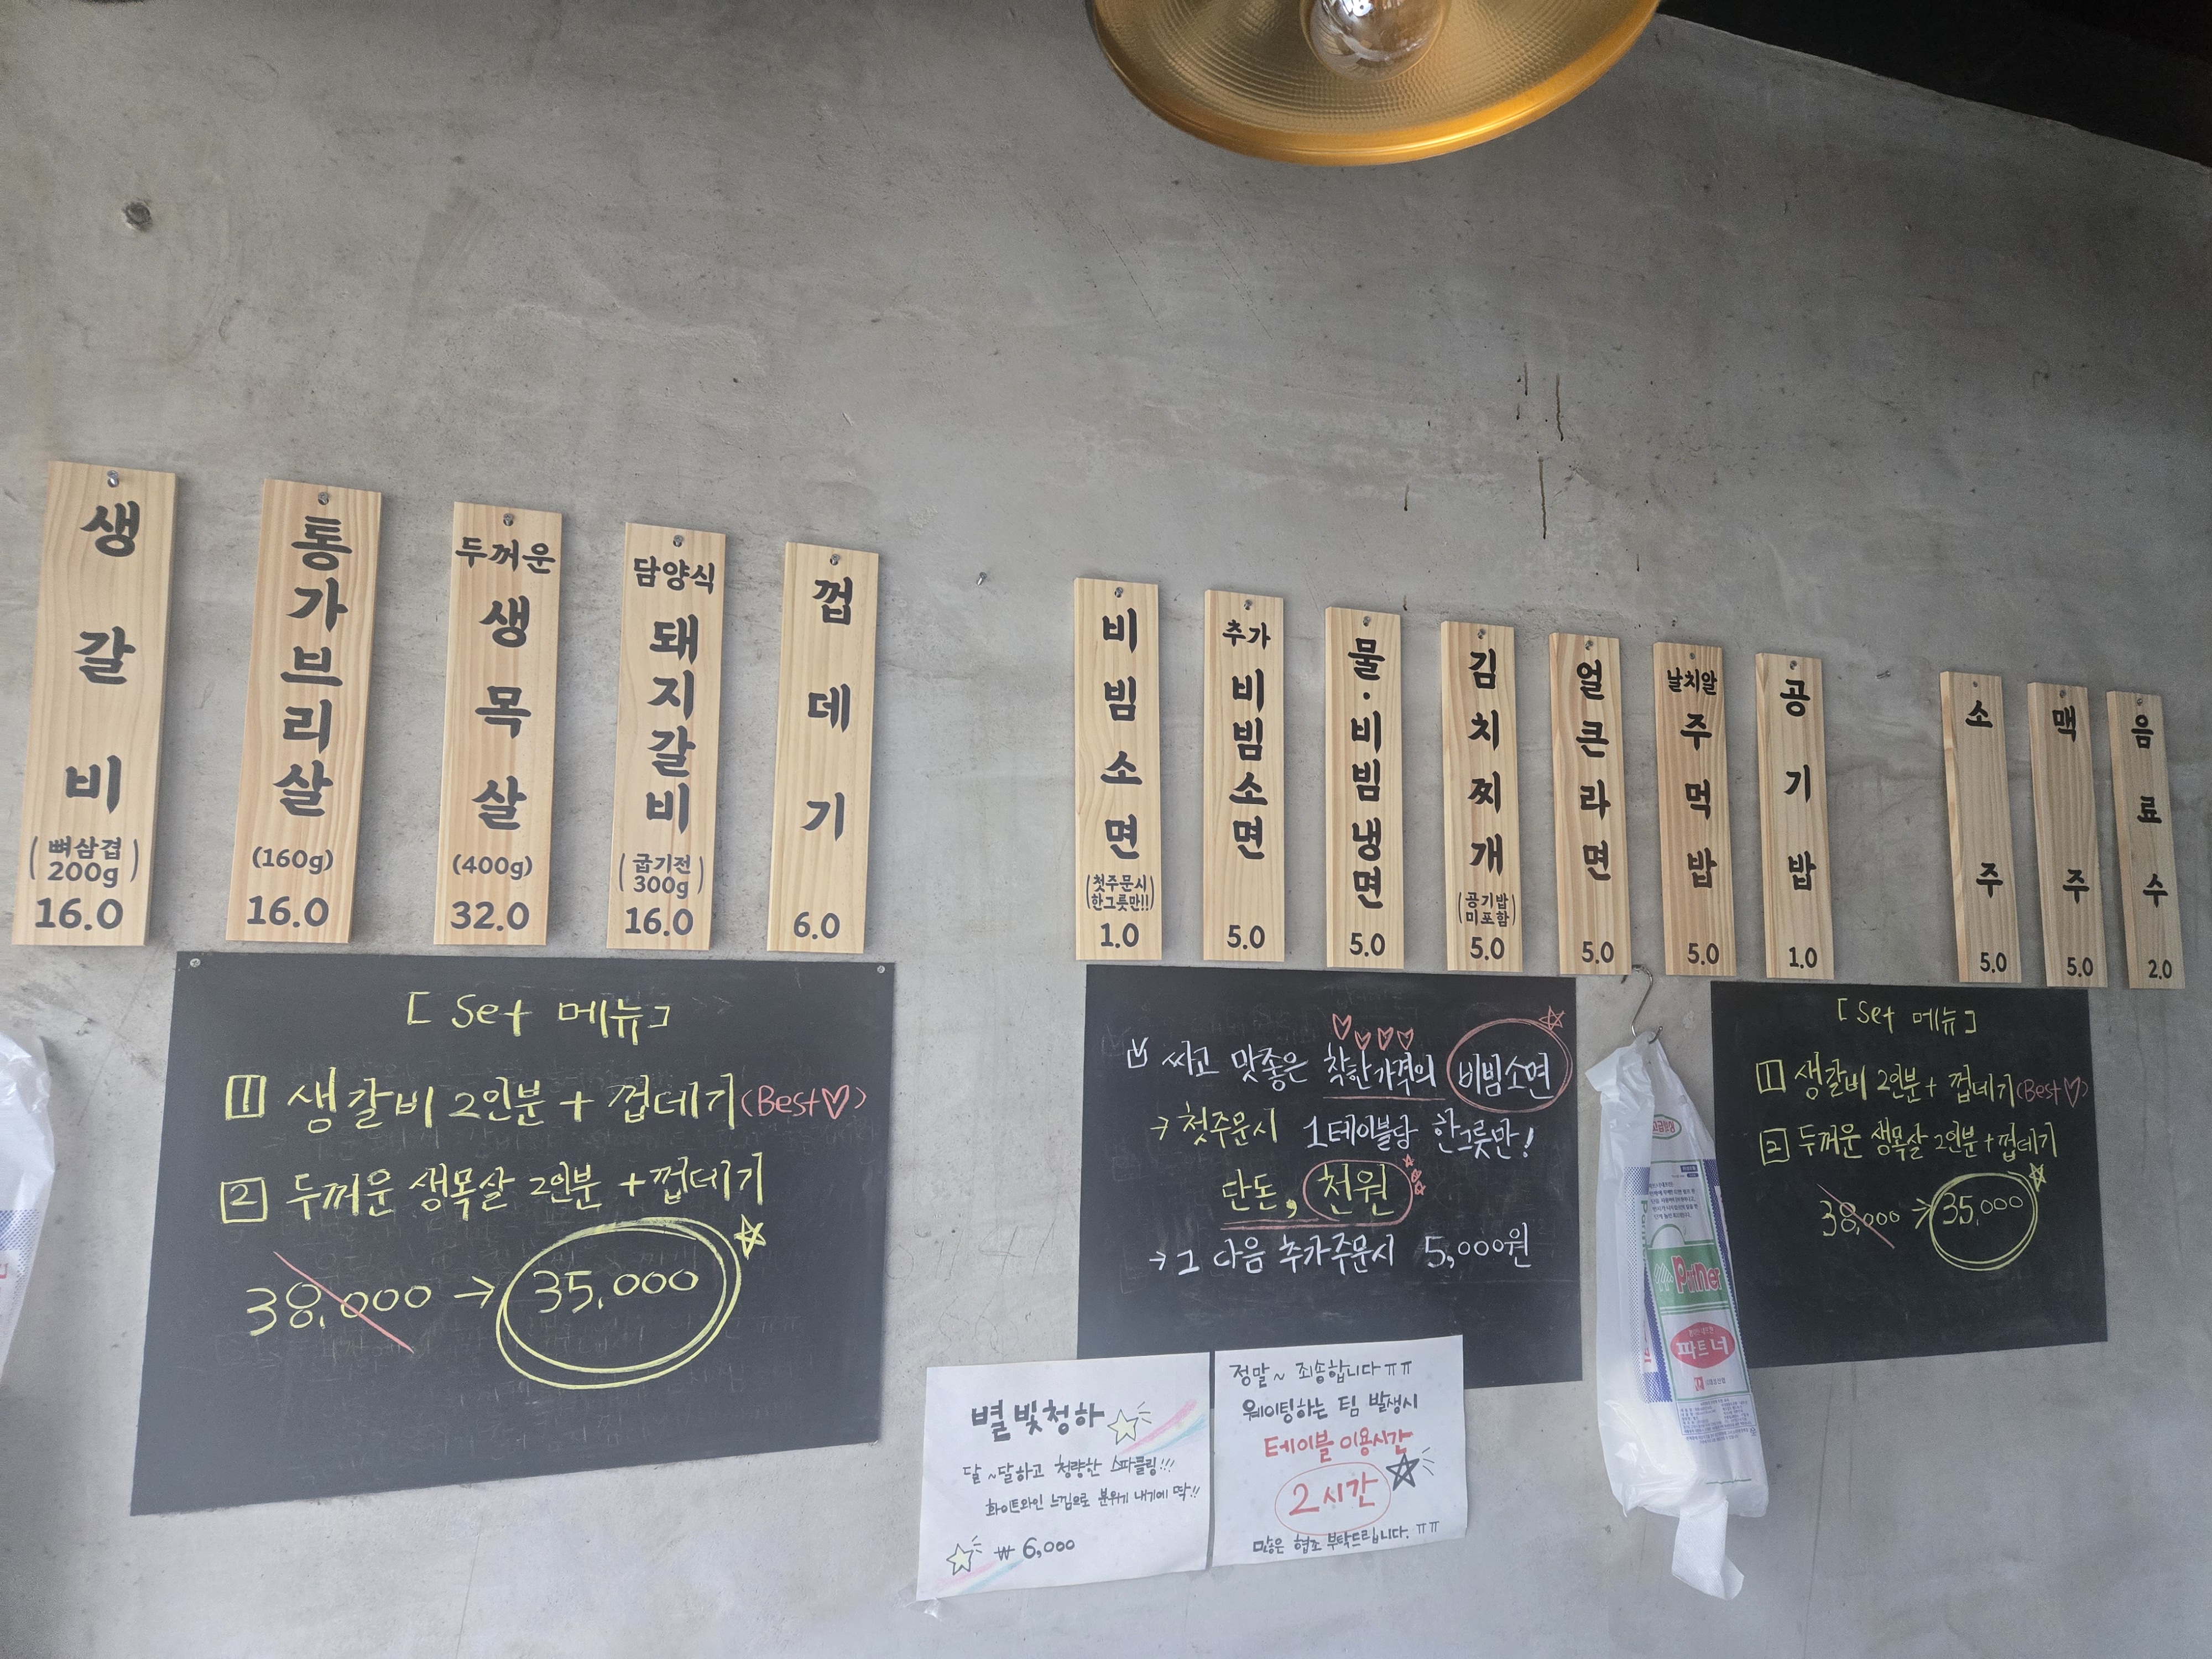 생갈비
(뼈삼겹
200g)
16.0
통가브리살
(160g)
16.0
두꺼운
생목살
(400g)
32.0
담양식
돼지갈비
(굽기전
300g)
16.0
껍데기
6.0
비빔소면
(첫주문시
한그릇만!!)
1.0
추가
비빔소면
5.0
물·비빔냉면
5.0
김치찌개
(공기밥
미포함)
5.0
얼큰라면
5.0
날치알
주먹밥
5.0
공기밥
1.0
소주
5.0
맥주
5.0
음료수
2.0
[Set 메뉴]
1 생갈비 2인분 + 껍데기 (Best♡)
2 두꺼운 생목살 2인분 + 껍데기
38,000 → 35,000
싸고 맛좋은 착한가격의 비빔소면
→ 첫주문시 1테이블당 한그릇만!
단돈, 천원
→ 그 다음 추가주문시 5,000원
[Set 메뉴]
1 생갈비 2인분 + 껍데기 (Best♡)
2 두꺼운 생목살 2인분 + 껍데기
38,000 → 35,000
별빛청하
달~달하고 청량한 스파클링!!!
화이트와인 느낌으로 분위기 내기에 딱!!
₩ 6,000
정말~ 죄송합니다 ㅠㅠ
웨이팅하는 팀 발생시
테이블 이용시간
2시간
많은 협조 부탁드립니다. ㅠㅠ
Partner
파트너